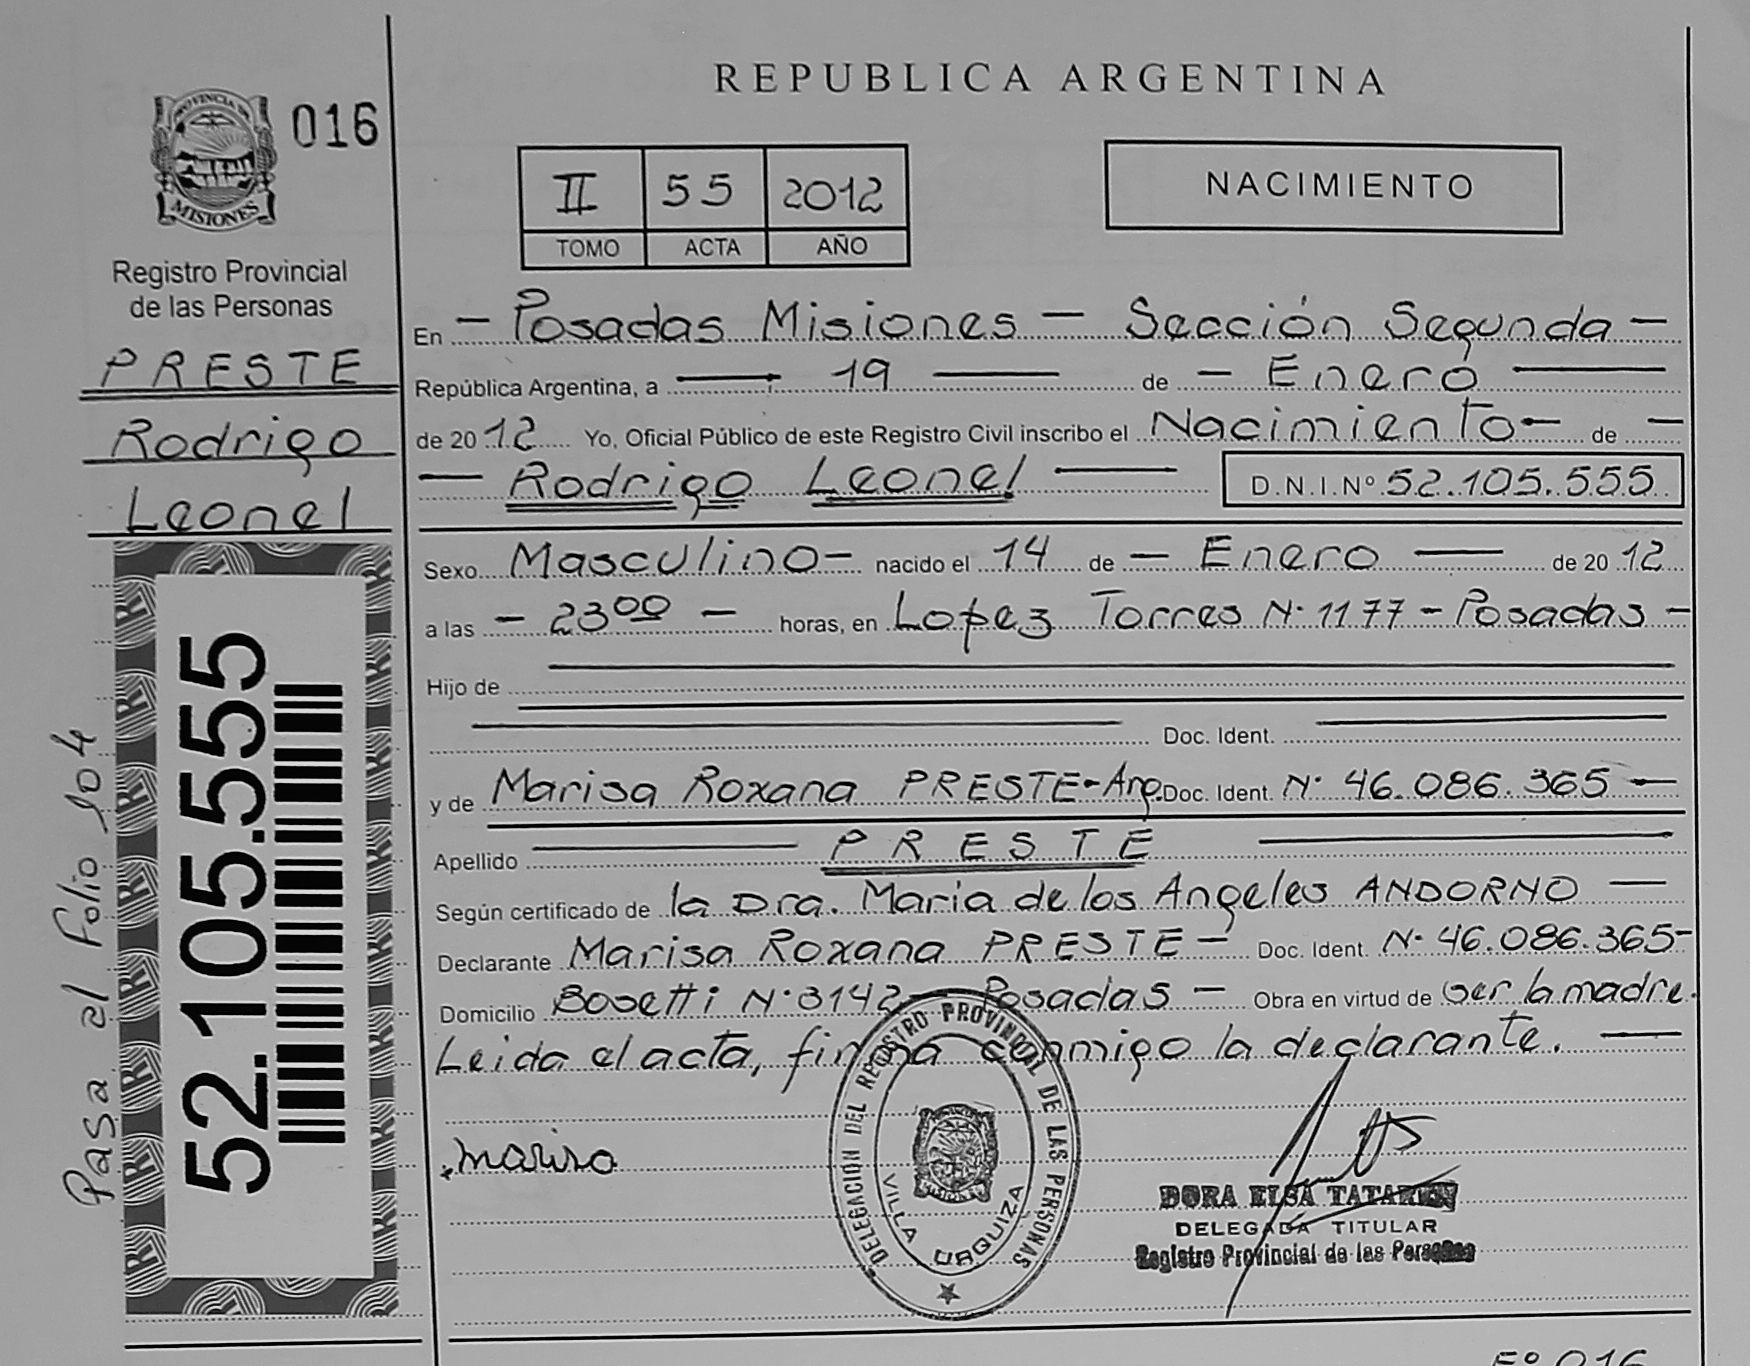 REPUBLICA ARGENTINA
PROVINCIA DE
MISIONES
016
Registro Provincial
de las Personas
PRESTE
Rodrigo
Leonel
52.105.555
Pasa al Folio 104
II 55 2012
TOMO ACTA AÑO
NACIMIENTO
En — Posadas Misiones — Sección Segunda —
República Argentina, a — 19 — de — Enero —
de 2012 Yo, Oficial Público de este Registro Civil inscribo el Nacimiento — de —
— Rodrigo Leonel — D.N.I.Nº 52.105.555
Sexo Masculino — nacido el 14 de — Enero — de 2012
a las — 23⁰⁰ — horas, en Lopez Torres N· 1177 — Posadas —
Hijo de
Doc. Ident.
y de Marisa Roxana PRESTE-Arg. Doc. Ident. N· 46.086.365 —
Apellido — PRESTE —
Según certificado de la Dra. Maria de los Angeles ANDORNO —
Declarante Marisa Roxana PRESTE — Doc. Ident. N· 46.086.365-
Domicilio Bosetti N·3142 — Posadas — Obra en virtud de ser la madre.
Leida el acta, firma conmigo la declarante. —
marisa
DELEGACION DEL REGISTRO PROVINCIAL DE LAS PERSONAS
VILLA URQUIZA
MISIONES
DORA ELSA
DELEGADA TITULAR
Registro Provincial de las Personas
Fº 016